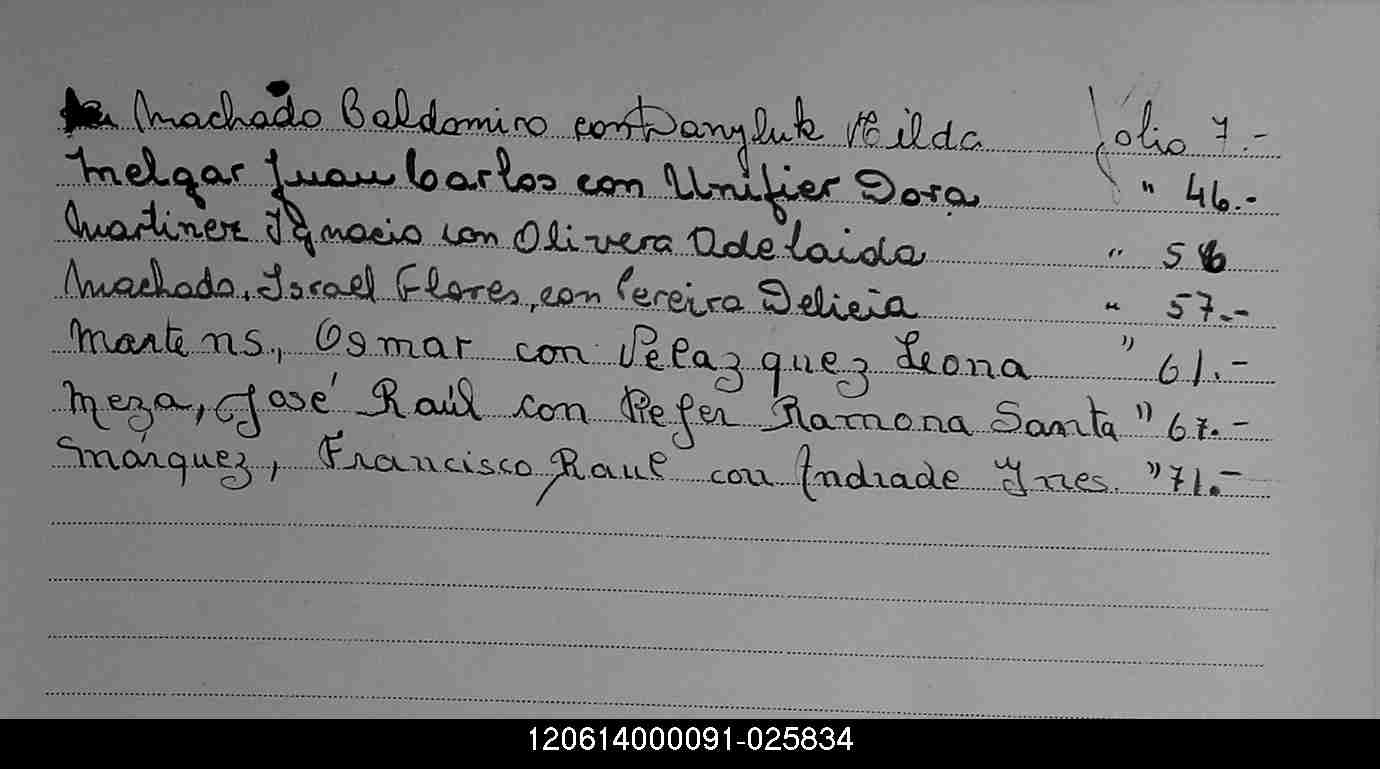 Machado Baldomiro con Danyluk Hilda folio 7.-
Melgar Juan Carlos con Unifier Dora " 46.-
Martinez Ignacio con Olivera Adelaida " 56
Machado, Israel Flores, con Pereira Delicia " 57.-
Martens, Osmar con Velazquez Leona " 61.-
Meza, José Raúl con Piefer Ramona Santa " 67.-
Márquez, Francisco Raul con Andrade Ynes. " 71.-
120614000091-025834